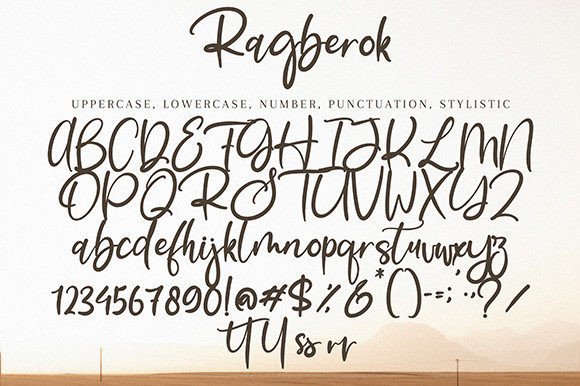 Ragberok
UPPERCASE, LOWERCASE, NUMBER, PUNCTUATION, STYLISTIC
ABCDEFGHIJKLMN
OPQRSTUVWXYZ
abcdefhijklmnopqrstuvwxyz
1234567890!@#$%&*()-=;:,.?/
tt TT ss rr